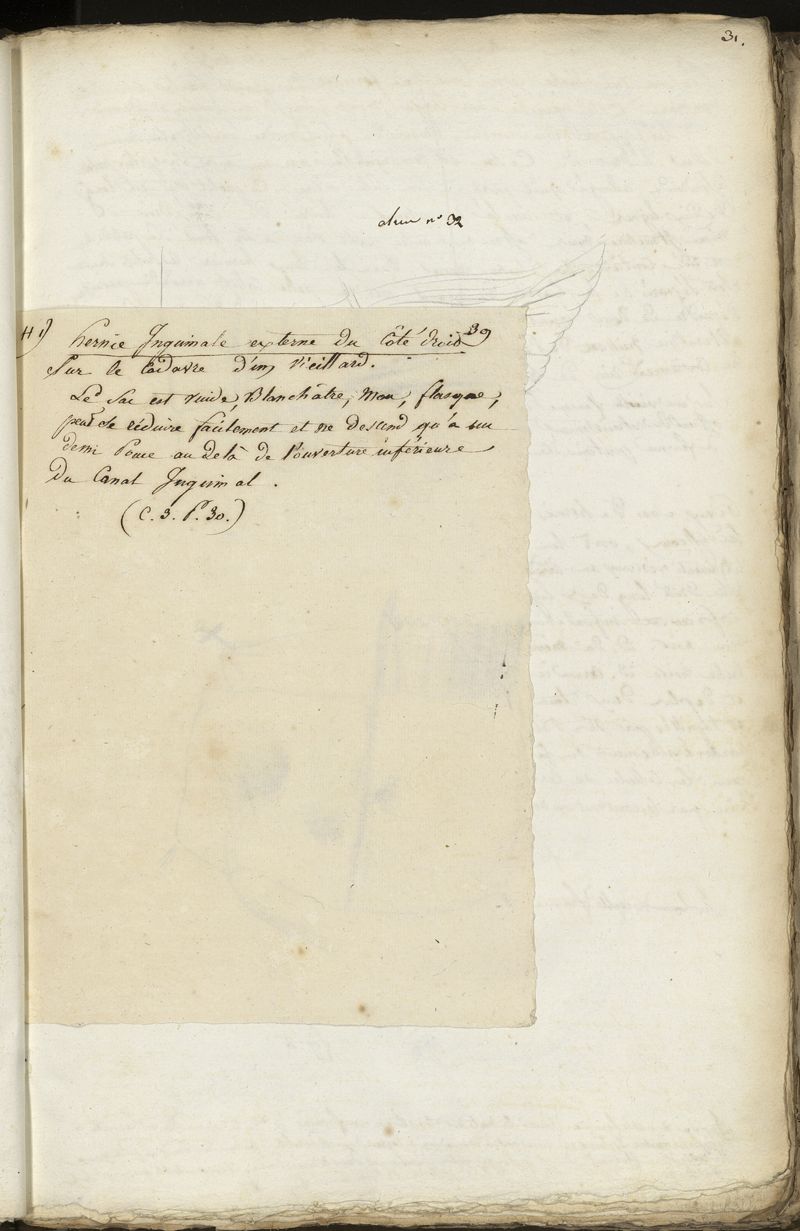 31.
n° 32
H 1) hernie Inguinale externe du Côté droit 39
Sur le Cadavre d'un Vieillard.
Le Sac est ruidé, Blanchâtre, Mou, flasque,
peut se réduire facilement et ne descend qu'à un
demi Pouce au Delà de l'ouverture inférieure
Du Canal Inguinal.
(C. 3. P. 30.)